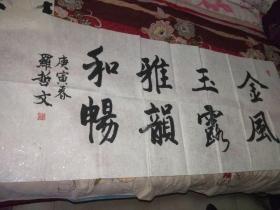 金風
玉露
雅韻
和暢
庚寅春
羅哲文